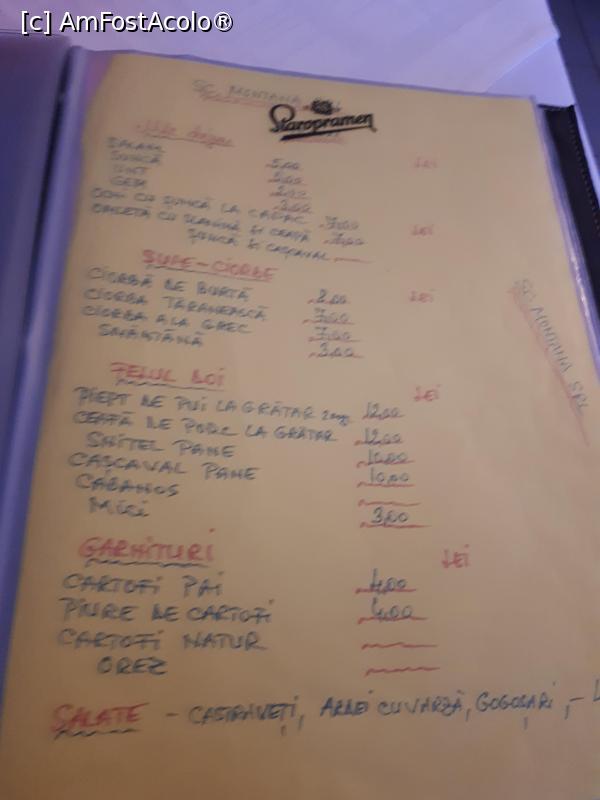 [c] AmFostAcolo®
SC MONTANA
Staropramen
SALAM 5,00 LEI
ȘUNCĂ 5,00
UNT 2,00
GEM 3,00
OCHI CU ȘUNCĂ LA CAPAC 7,00
OMLETĂ CU SLĂNINĂ ȘI CEAPĂ 7,00 LEI
ȘUNCĂ ȘI CAȘCAVAL
SUPE-CIORBE
CIORBĂ DE BURTĂ 8,00 LEI
CIORBA ȚĂRĂNEASCĂ 7,00
CIORBA A LA GREC 7,00
SMÂNTÂNĂ 3,00
SC MONTANA SRL
FELUL DOI LEI
PIEPT DE PUI LA GRĂTAR 12,00
CEAFĂ DE PORC LA GRĂTAR 12,00
ȘNIȚEL PANE 10,00
CAȘCAVAL PANE 10,00
CABANOS
MICI 3,00
GARNITURI LEI
CARTOFI PAI 4,00
PIURE DE CARTOFI 4,00
CARTOFI NATUR
OREZ
SALATE - CASTRAVEȚI, ARDEI CU VARZĂ, GOGOȘARI, -